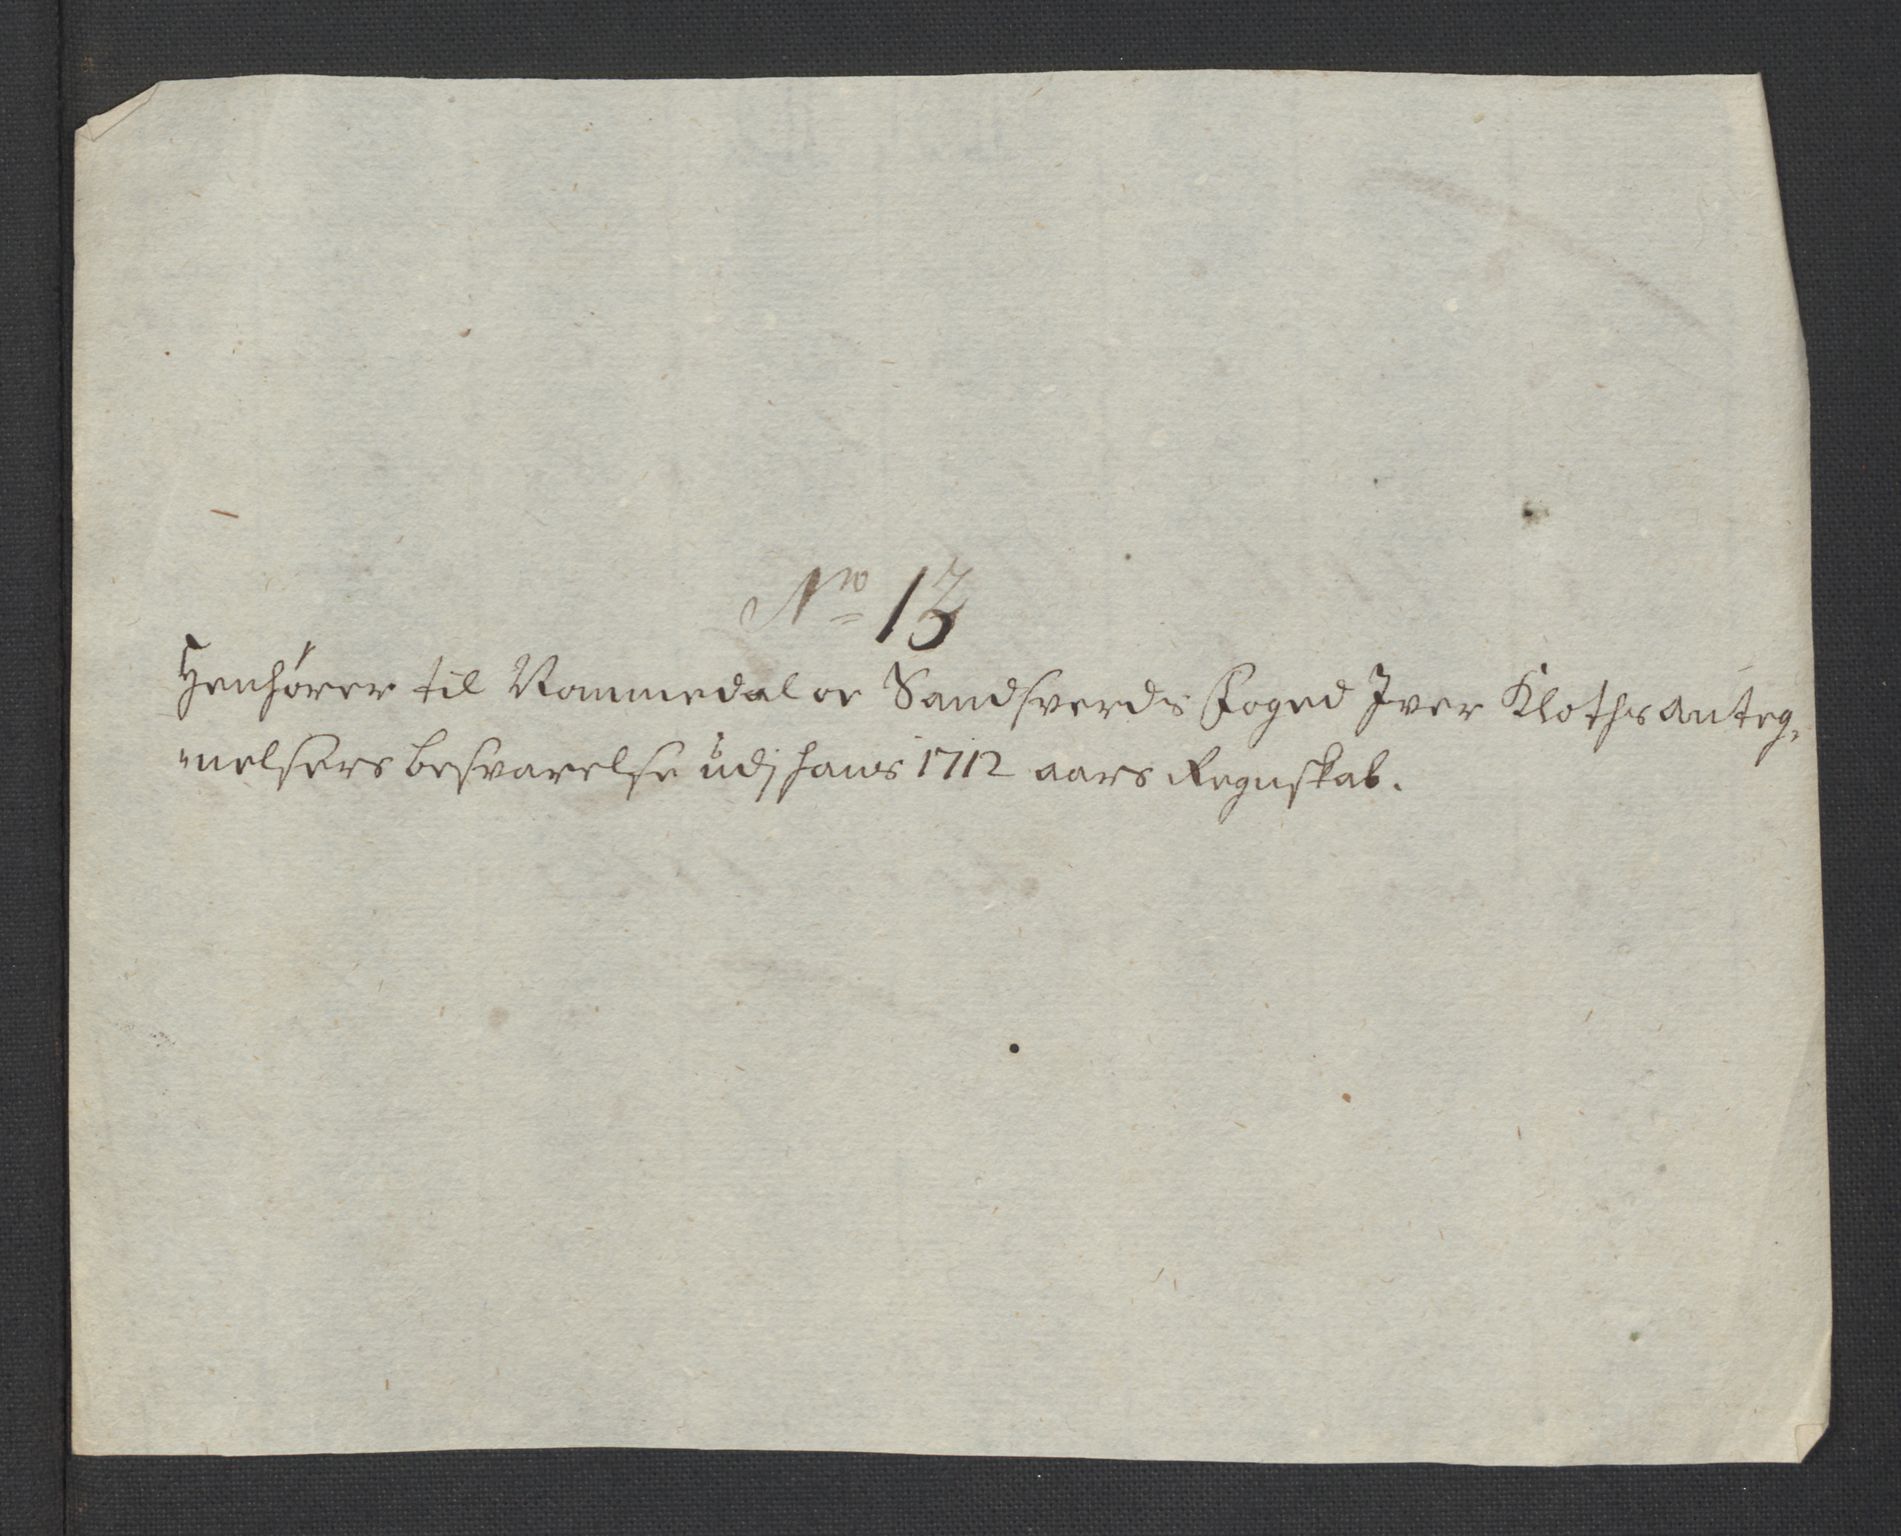 No 13
Henhører til Nommedal oc Sandsverds Foged Iver Kloths anteg,
nelsers besvarelse udj hans 1712 aars Regnskab.